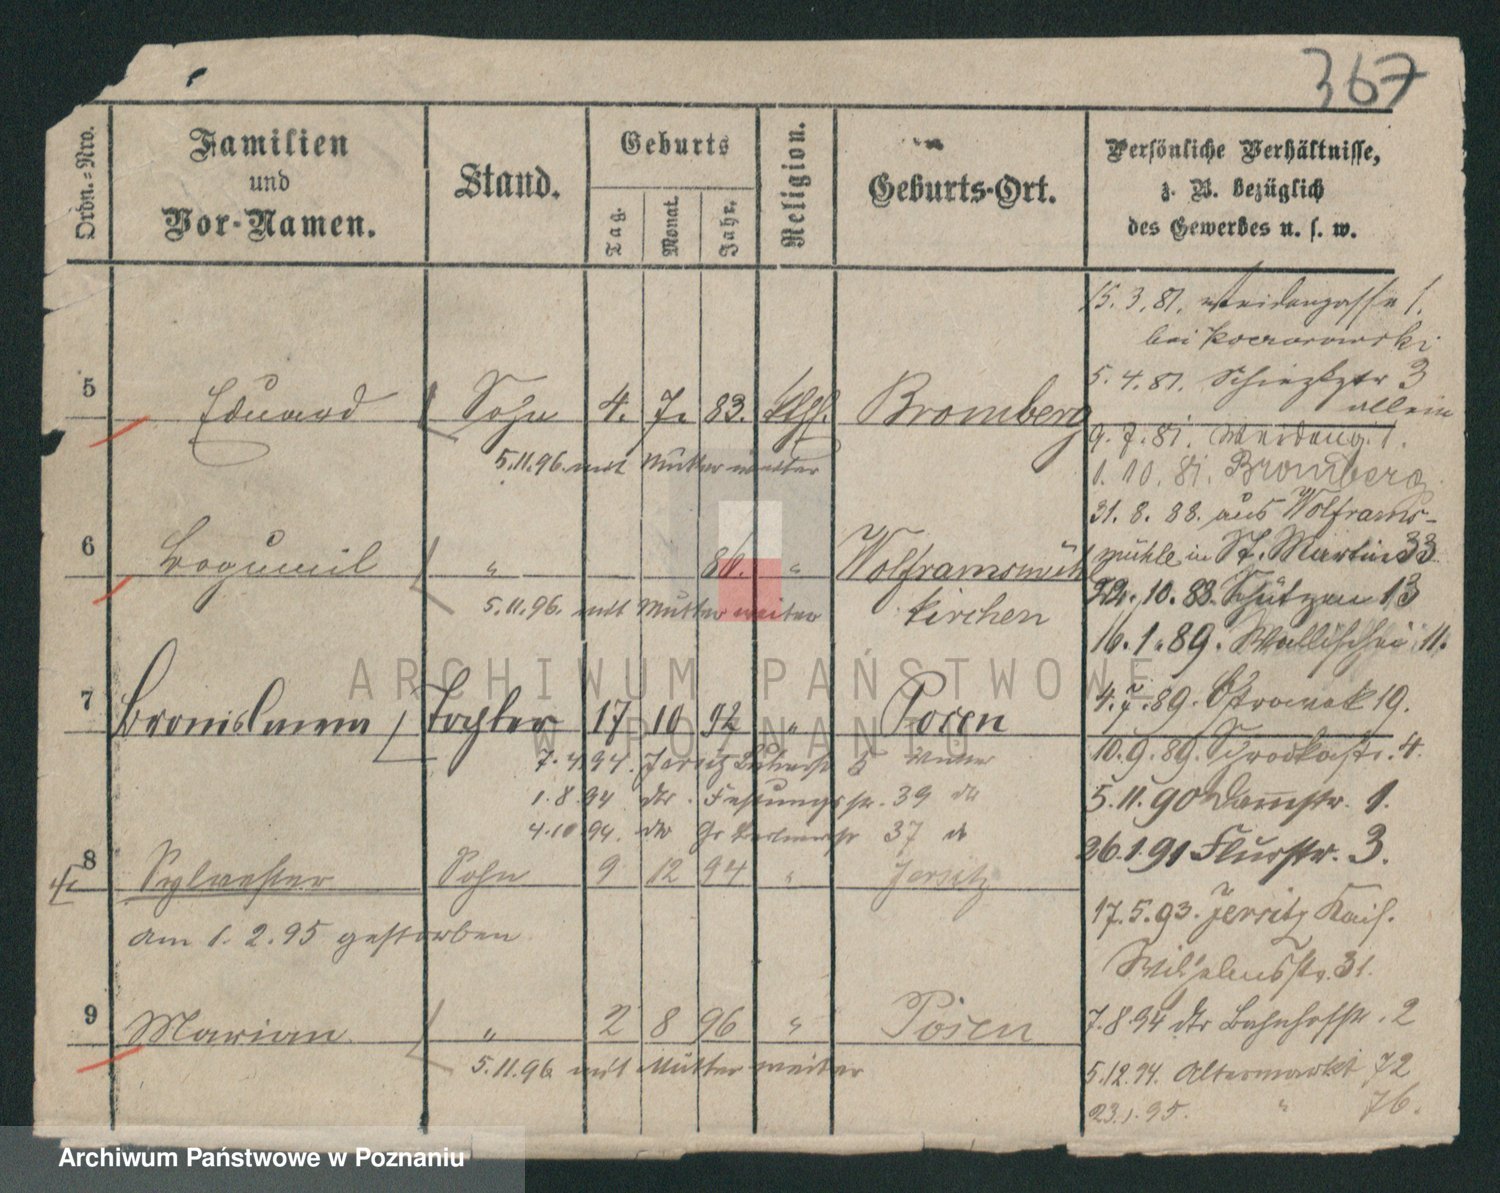 367
Ordn.-Nro.
Familien
und
Vor-Namen.
Stand.
Geburts
Tag.
Monat.
Jahr.
Religion.
Geburts-Ort.
Persönliche Verhältnisse,
z. B. bezüglich
des Gewerbes u. s. w.
5 Eduard Sohn 4. 7. 83. Bromberg
5.11.96. mit Mutter weiter
6 Bogumil " 86. "
kirchen
5.11.96. mit Mutter weiter
7 Bronislawa Tochter 17 10 92 " Posen
7.4.94. Jersitz 5 Mutter
1.8.94 dto. Festungsstr. 39 do
4.10.94. do Gr. 37 do
8 Sylvester Sohn 9 12 94 " Jersitz
am 1. 2. 95 gestorben
9 Marian " 2 8 96 " Posen
5.11.96 mit Mutter weiter
15. 3. 81. Weidengasse 1.
bei
5. 4. 81. 3
allein
9. 7. 81. Weideng. 1.
1. 10. 81. Bromberg
31. 8. 88. aus Wolframs-
mühle in St. Martin 33
22. 10. 88. Schützen 13
16. 1. 89. Wallischei 11.
4. 7. 89. Ostrowek 19.
10. 9. 89. Schrodkastr. 4.
5. 11. 90 Dammstr. 1.
26. 1. 91 Flurstr. 3.
17. 5. 93. Jersitz Kais.
Wilhelmsstr. 31.
7. 8. 94 dto Bahnhofstr. 2
5. 12. 94. Altermarkt 72
23. 1. 95. " 76.
ARCHIWUM PAŃSTWOWE
W POZNANIU
Archiwum Państwowe w Poznaniu